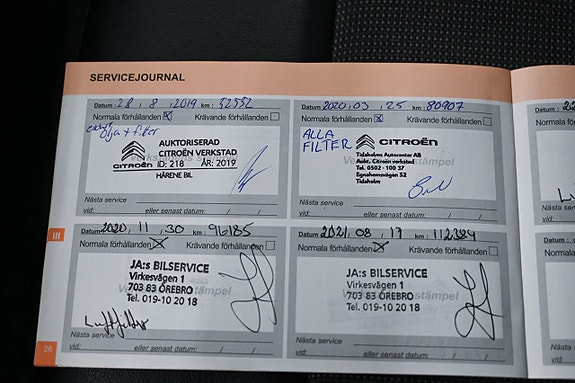 SERVICEJOURNAL
Datum: 28, 8, 2019 km: 52552
Normala förhållanden Krävande förhållanden
olja + filter
AUKTORISERAD
CITROËN VERKSTAD
ID: 218 ÅR: 2019
HÅRENE BIL
Nästa service
vid: eller senast datum: / /
Datum: 2020, 03, 25 km: 80907
Normala förhållanden Krävande förhållanden
ALLA
FILTER
CITROËN
Tidaholms Autocenter AB
Aukt. Citroën verkstad
Tel. 0502 - 100 37
Egnahemsvägen 52
Tidaholm
Nästa service
vid: eller senast datum: / /
III
Datum: 2020, 11, 30 km: 96185
Normala förhållanden Krävande förhållanden
JA:s BILSERVICE
Virkesvägen 1
703 83 ÖREBRO
Tel. 019-10 20 18
Nästa service
vid: eller senast datum: / /
Datum: 2021, 08, 17 km: 112384
Normala förhållanden Krävande förhållanden
JA:s BILSERVICE
Virkesvägen 1
703 83 ÖREBRO
Tel. 019-10 20 18
Nästa service
vid: eller senast datum: / /
26